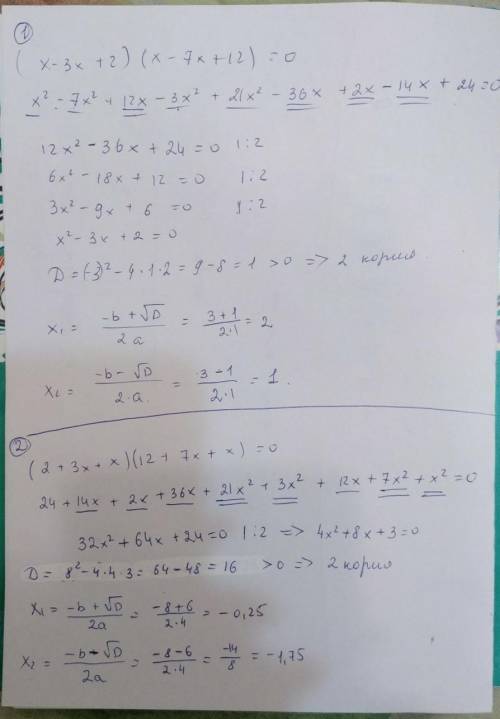 1
(x-3x+2)(x-7x+12)=0
x²-7x²+12x-3x²+21x²-36x+2x-14x+24=0
12x²-36x+24=0 |:2
6x²-18x+12=0 |:2
3x²-9x+6=0 |:2
x²-3x+2=0
D=(-3)²-4·1·2=9-8=1 >0 => 2 корня
x₁= (-b+√D)/2a = (3+1)/2·1 = 2
x₂= (-b-√D)/2·a = (3-1)/2·1 = 1.
2
(2+3x+x)(12+7x+x)=0
24+14x+2x+36x+21x²+3x²+12x+7x²+x²=0
32x²+64x+24=0 |:2 => 4x²+8x+3=0
D=8²-4·4·3=64-48=16 >0 => 2 корня
x₁= (-b+√D)/2a = (-8+6)/2·4 = -0,25
x₂= (-b-√D)/2a = (-8-6)/2·4 = -14/8 = -1,75